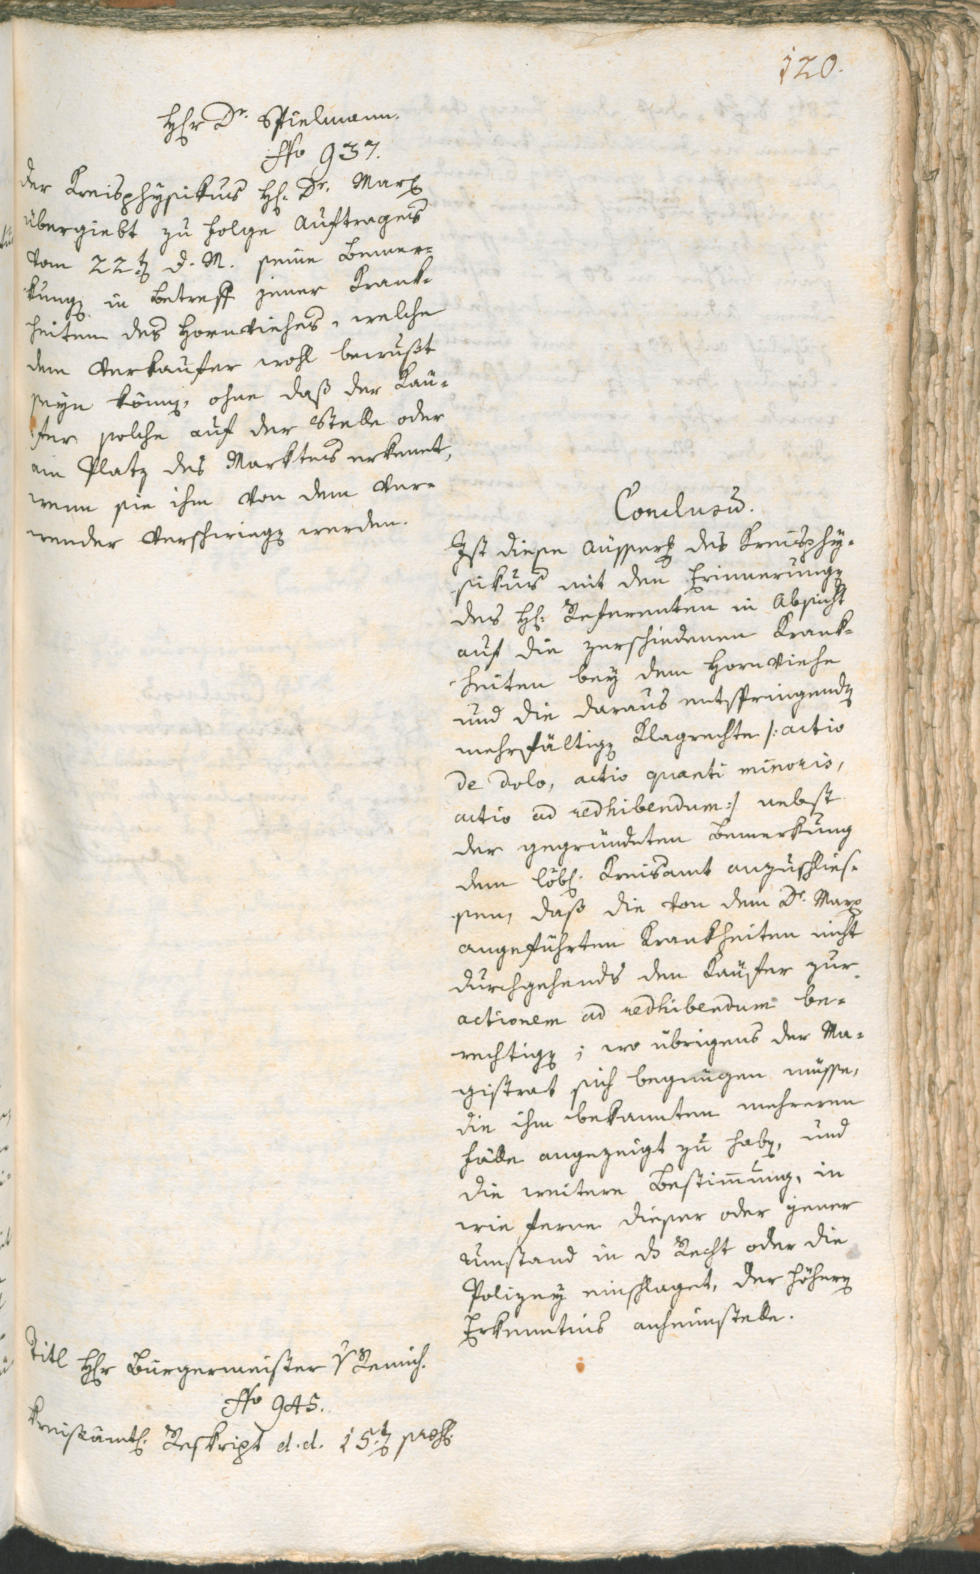 120.
Hr Dr. Spielmann.
No 937.
der Kreisphysikus H. Dr. Marx
übergiebt zu Folge Auftrages
vom 22ten d. M. seine Bemer-
kungen in Betreff jener Krank-
heiten des Hornviehes, welche
dem Verkäufer wohl bewußt
seyn können, ohne daß der Käu-
fer solche auf der Stelle oder
am Platz des Marktes erkennt,
wenn sie ihm von dem Ver-
wender verschwiegen werden.
Conclusũ.
Ist diese Äusserung des Kreisphy-
sikus mit den Erinnerungen
des H: Referenten in Absicht
auf die verschiedenen Krank-
heiten bey dem Hornviehe
und die daraus entspringenden
mehrfältigen Klagrechte /: actio
de dolo, actio quanti minoris,
actio ad redhibendum :/ nebst
der gegründeten Bemerkung
dem löbl. Kreisamt anzuschlies-
sen, daß die von dem Dr. Marx
angeführten Krankheiten nicht
durchgehends den Käufer zur
actionem ad redhibendum be-
rechtigen; wo übrigens der Ma-
gistrat sich begnügen müsse,
die ihm bekannten mehreren
Fälle angezeigt zu haben, und
die weitere Bestimmung, in
wie ferne dieser oder jener
Umstand in ds Recht oder die
Polizey einschlaget, der höhern
Erkenntnis anheimstelle.
Titl Hr Bürgermeister v Remich.
No 945.
Kreisämtl. Reskript d. d. 15ten